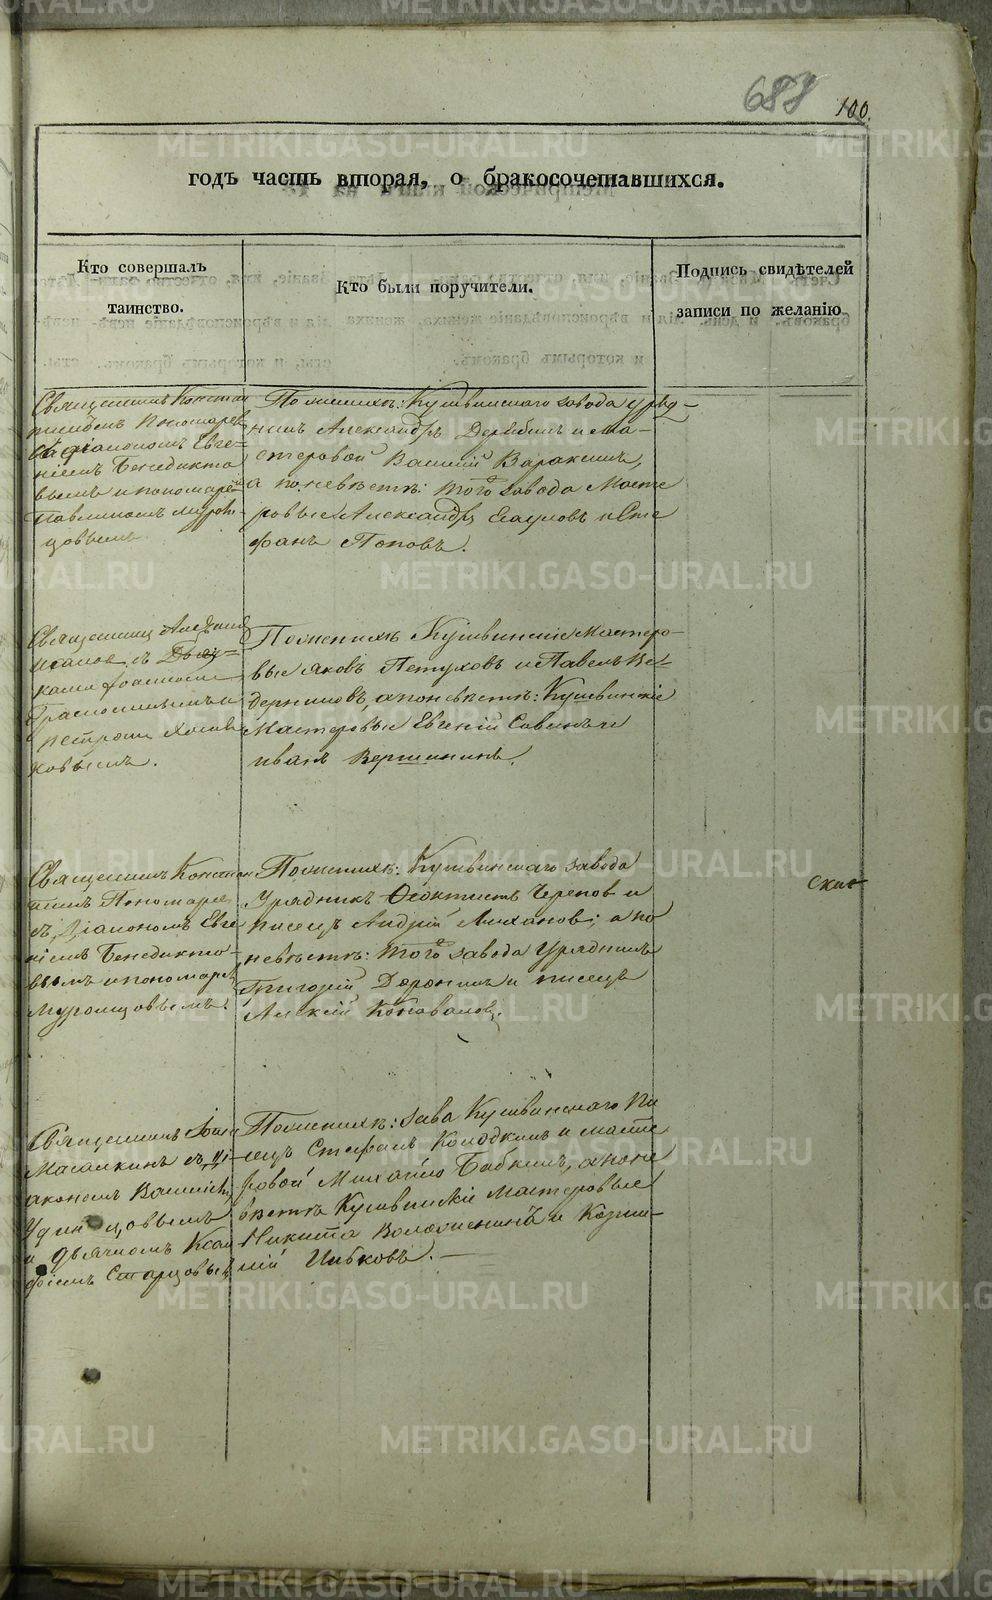 688 100.
годъ часть вторая, о бракосочетавшихся.
Кто совершалъ
таинство.
Кто были поручители.
Подпись свидѣтелей
записи по желанію
Священникъ Констан
тинъ Пономаревъ
съ діакономъ Евге-
ніемъ Бенедикто
вымъ и пономаремъ
Павлиномъ Муром-
цовымъ
По женихѣ: Кушвинскаго завода уряд-
никъ Александръ Дерябинъ и ма-
стеровой Василій Варакинъ,
а по невѣстѣ: того завода Масте
ровые Александръ Есауловъ и Сте
фанъ Поповъ.
Священникъ
съ
Іоанномъ
и
Петромъ
ковымъ.
По женихѣ Кушвинскіе Мастеро-
вые Яковъ Пѣтуховъ и Павелъ Ве-
дерниковъ, а по невѣстѣ: Кушвинскіе
Мастеровые Евгеній Савинъ и
Иванъ Вершининъ.
Священникъ Констан
тинъ Пономаревъ
съ Діакономъ Евге
ніемъ Бенедикто-
вымъ и пономаремъ
Муромцовымъ.
По женихѣ: Кушвинскаго завода
Урядникъ Ѳеоктистъ Черепов и
писецъ Андрей Лихановъ; а по
невѣстѣ: того завода Урядникъ
Григорій Доронинъ и писецъ
Алексѣй Коноваловъ.
Священникъ Іоаннъ
Масалкинъ съ ді-
акономъ Василіемъ
Удинцовымъ
и дьячкомъ Ксан
фіемъ Старцовымъ
По женихѣ: зава Кушвинскаго Пи
сецъ Стефанъ Колодкинъ и масте
ровой Михайло Бабкинъ, а по не
вѣстѣ Кушвинскіе Мастеровые
Никита Воложенинъ и Корни-
лій Цибковъ.